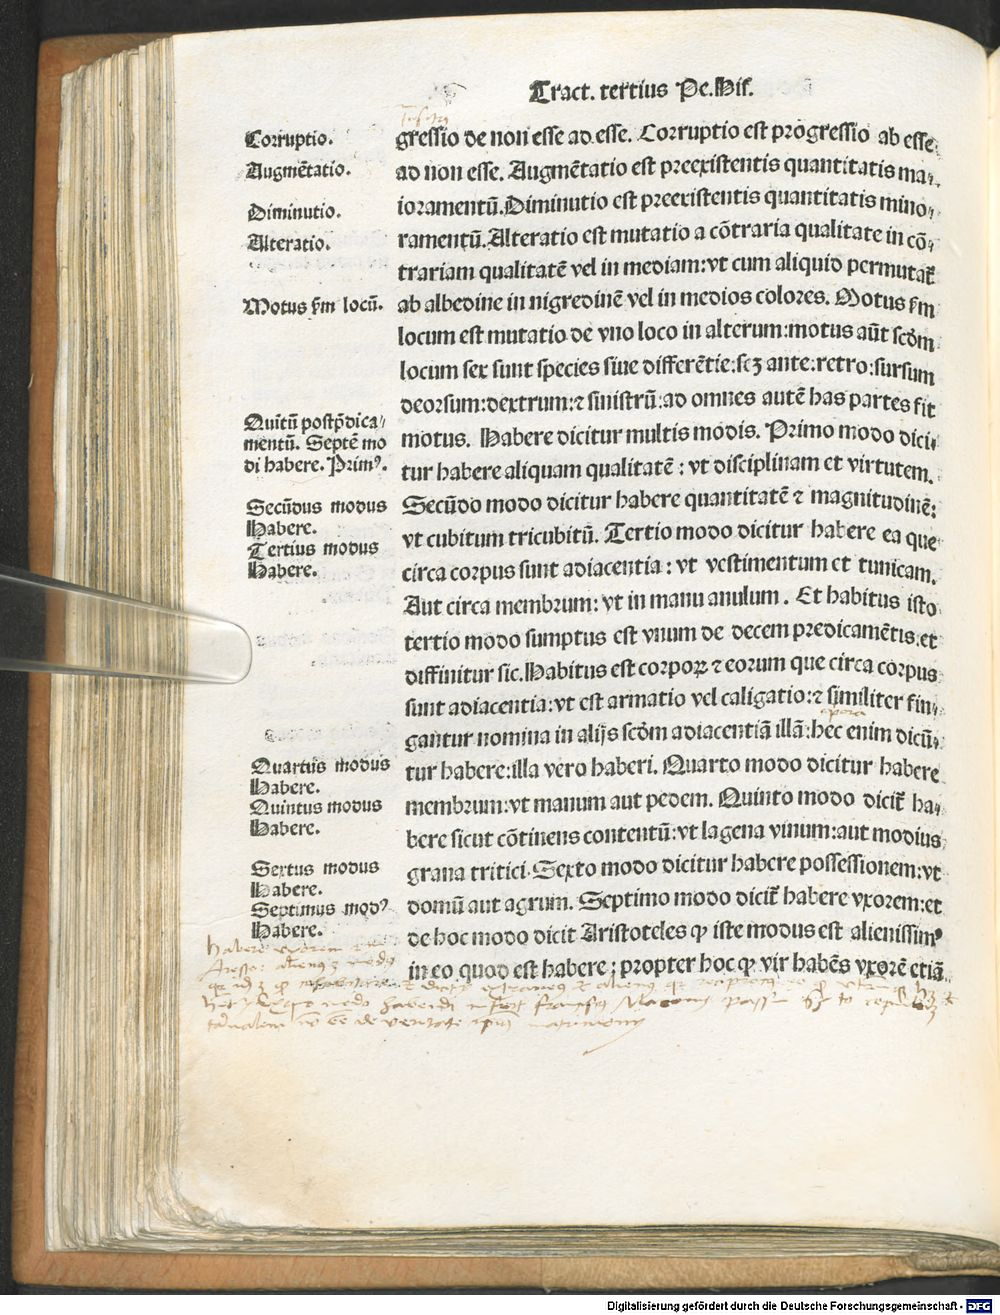 Tract. tertius Pe. His.
gressio de non esse ad esse. Corruptio est progressio ab esse
ad non esse. Augmētatio est preexistentis quantitatis ma⸗
ioramentū. Diminutio est preexistentis quantitatis mino⸗
ramentū. Alteratio est mutatio a cōtraria qualitate in cō⸗
trariam qualitatē vel in mediam: vt cum aliquid permutat᷑
ab albedine in nigredinē vel in medios colores. Motus ẜm
locum est mutatio de vno loco in alterum: motus aūt scd̓m
locum sex sunt species siue differētie: scꝫ ante: retro: sursum
deorsum: dextrum: ⁊ sinistrū: ad omnes autē has partes fit
motus. Habere dicitur multis modis. Primo modo dici⸗
tur habere aliquam qualitatē: vt disciplinam et virtutem.
Secūdo modo dicitur habere quantitatē ⁊ magnitudinē:
vt cubitum tricubitū. Tertio modo dicitur habere ea que
circa corpus sunt adiacentia: vt vestimentum et tunicam.
Aut circa membrum: vt in manu anulum. Et habitus isto
tertio modo sumptus est vnum de decem predicamētis. et
diffinitur sic. Habitus est corpoꝝ ⁊ eorum que circa corpus
sunt adiacentia: vt est armatio vel caligatio: ⁊ similiter fin⸗
gantur nomina in alijs scd̓m adiacentiā illā: hec enim dicū⸗
tur habere: illa vero haberi. Quarto modo dicitur habere
membrum: vt manum aut pedem. Quinto modo dicit᷑ ha⸗
bere sicut cōtinens contentū: vt lagena vinum: aut modius
grana tritici. Sexto modo dicitur habere possessionem: vt
domū aut agrum. Septimo modo dicit᷑ habere vxorem: et
de hoc modo dicit Aristoteles ꝙ iste modus est alienissimꝰ
in eo quod est habere; propter hoc ꝙ vir habēs vxorē etiā
Corruptio.
Augmētatio.
Diminutio.
Alteratio.
Motus ẜm locū.
Quītū postp̄dica⸗
mentū. Septē mo
di habere. Primꝰ.
Secūdus modus
Habere.
Tertius modus
Habere.
Quartus modus
Habere.
Quintus modus
Habere.
Sextus modus
Habere.
Septimus modꝰ
Habere.
Digitalisierung gefördert durch die Deutsche Forschungsgemeinschaft - DFG